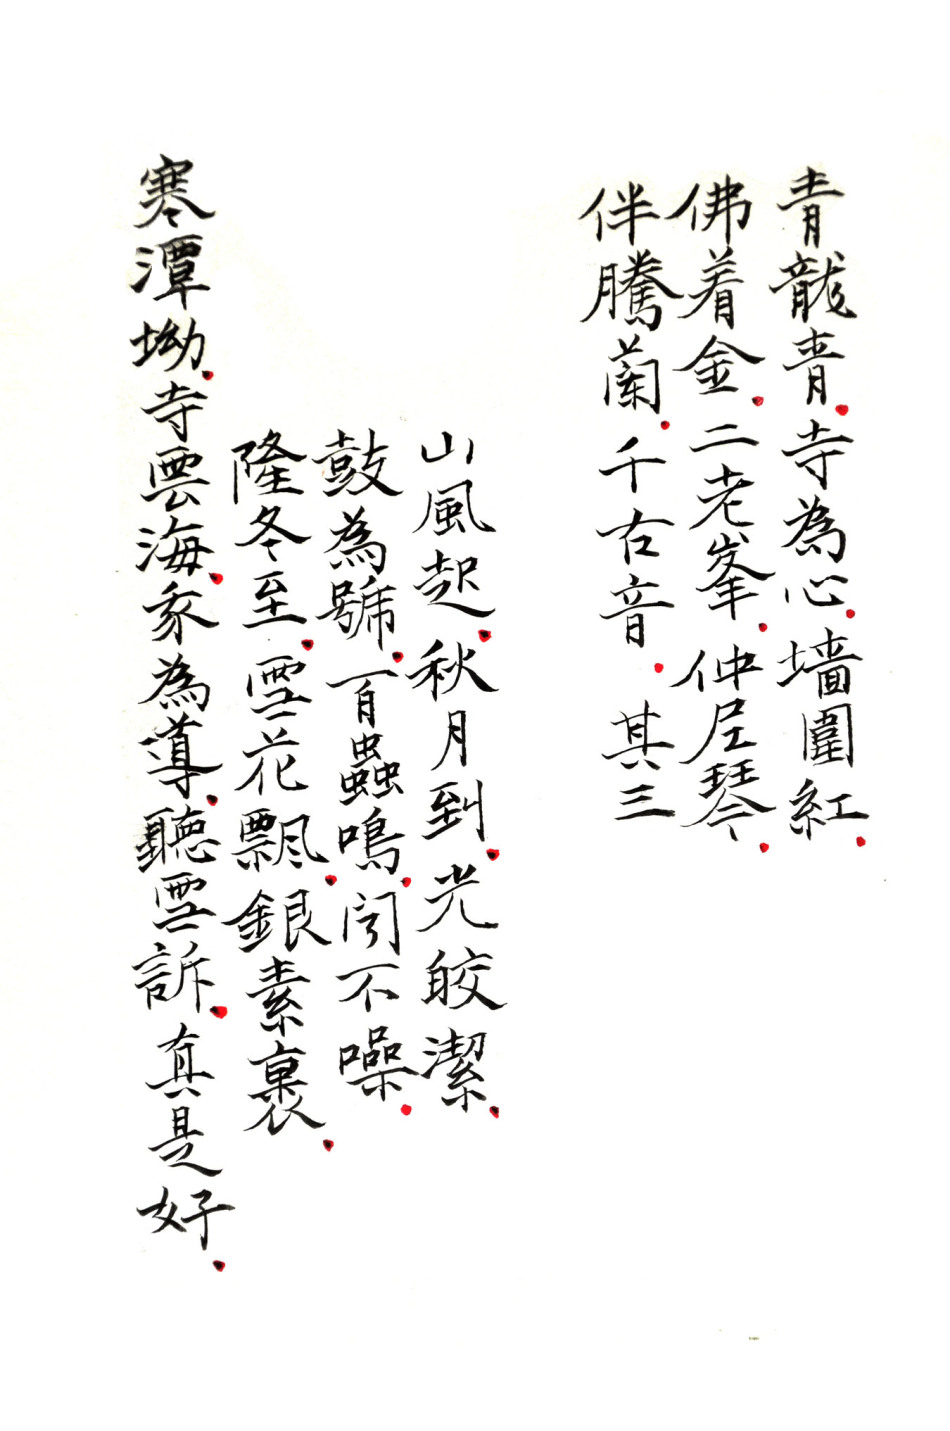 青龍青。寺為心。墙圍紅。
佛着金。二老峯。仲尼琴。
伴騰蘭。千古音。其三
山風起。秋月到。光皎潔。
鼓為號。百蟲鳴。不噪。
隆冬至。雪花飄。銀素裹。
寒潭坳。寺雲海。豕為導。聽雪訴。真是好。